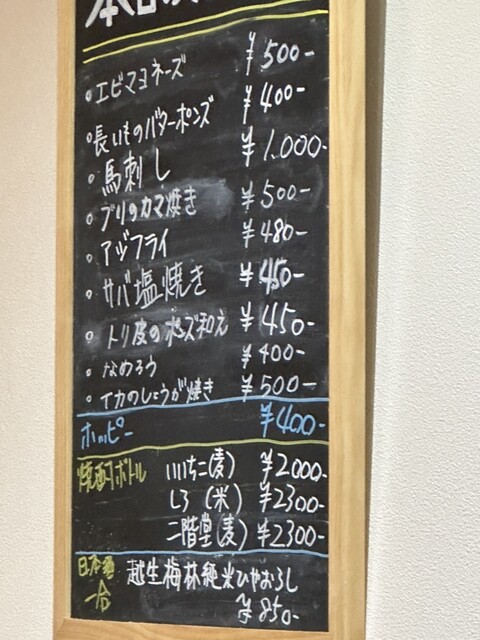 本日の
○ エビマヨネーズ ¥500-
○ 長いものバターポンズ ¥400-
○ 馬刺し ¥1.000-
○ ブリのカマ焼き ¥500-
○ アヅフライ ¥480-
○ サバ塩焼き ¥450-
○ トリ皮のポンズ和え ¥450-
○ なめろう ¥400-
○ イカのしょうが焼き ¥500-
ホッピー ¥400-
焼酎ボトル いいちこ(麦) ¥2000-
しろ (米) ¥2300-
二階堂(麦) ¥2300-
日本酒 越生梅林純米ひやおろし
一合 ¥850-